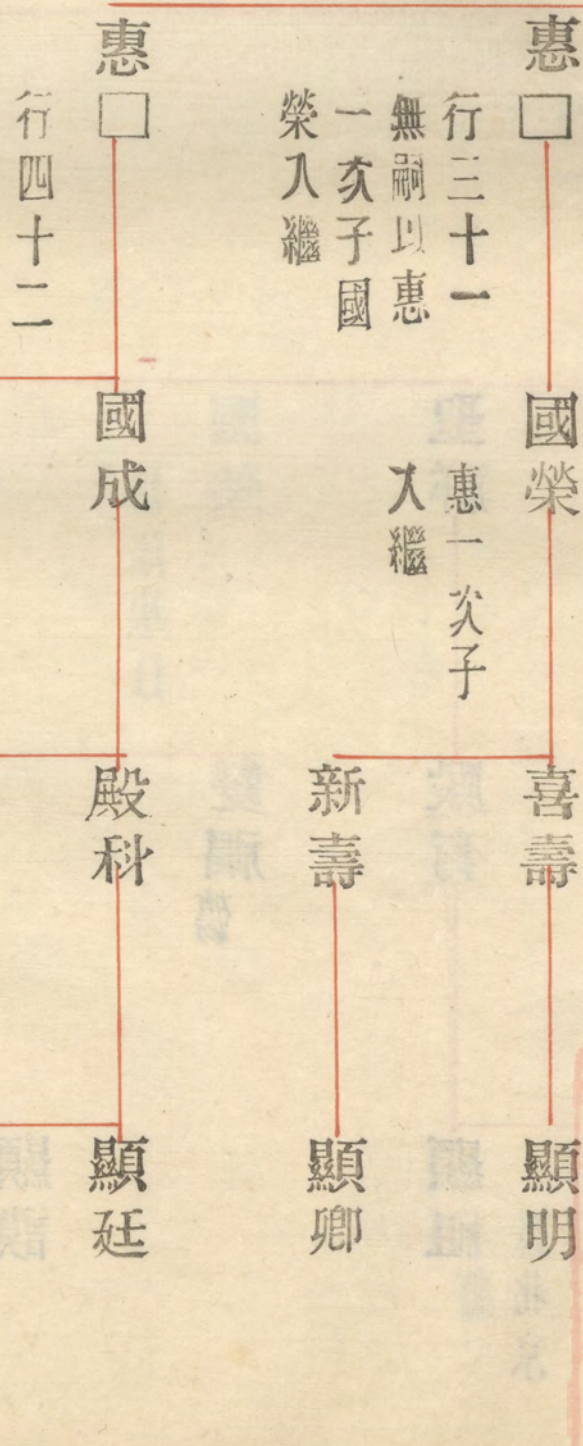 惠□
行三十一
無嗣以惠
一次子國
榮入繼
國榮
惠一次子
入繼
喜壽
新壽
顯明
顯卿
惠□
行四十二
國成
殿科
顯廷